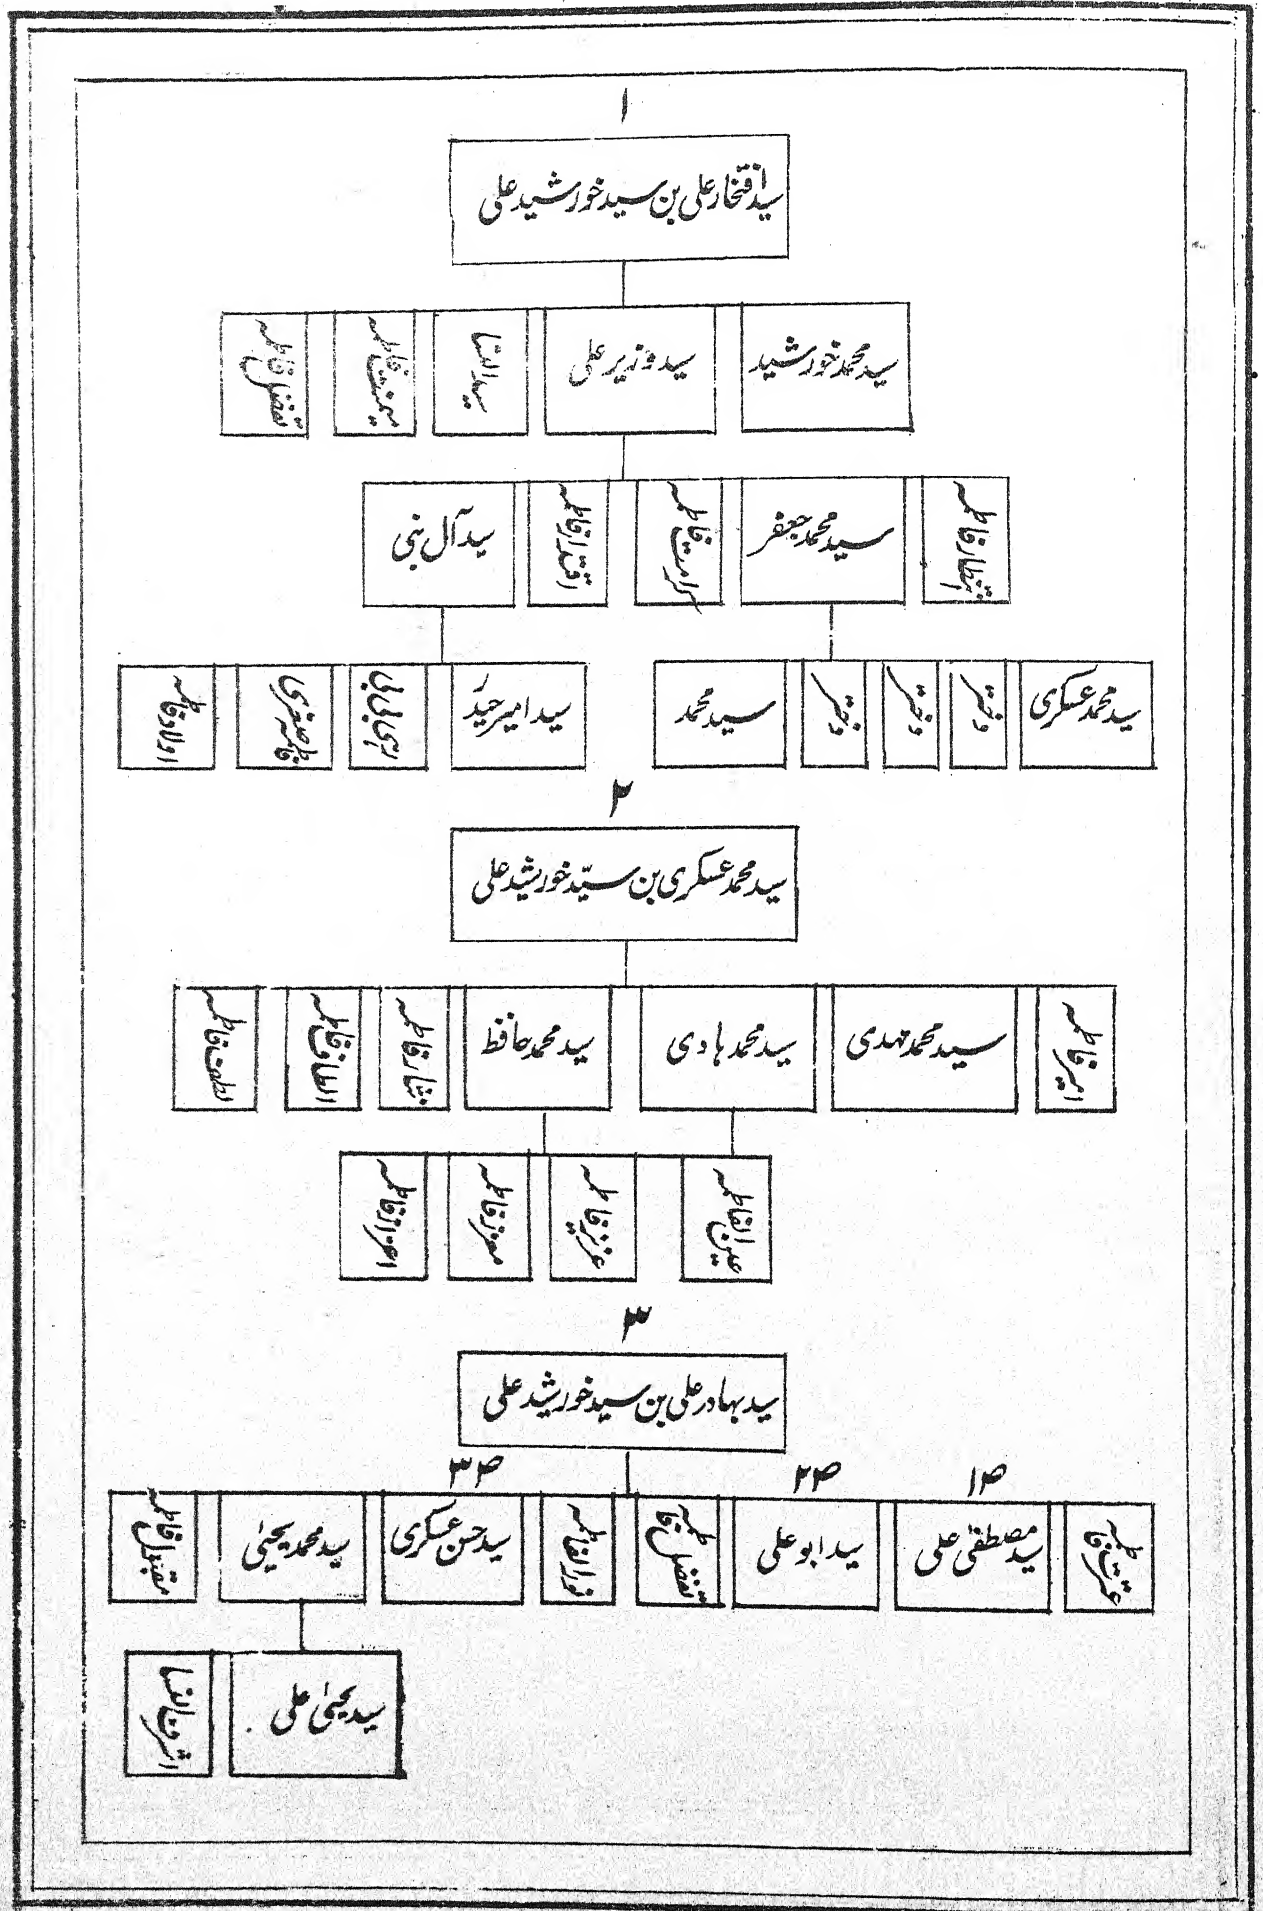 ۱
سید افتخار علی بن سید خورشید علی
سید محمد خورشید
سید وزیر علی
سید النسا
میمنت فاطمہ
تفضل فاطمہ
انتظار فاطمہ
سید محمد جعفر
کرامت فاطمہ
اقتدار فاطمہ
سید آل نبی
سید محمد عسکری
دختر
دختر
دختر
سید محمد
سید امیر حیدر
بی بی
فاطمہ صغری
اولاد فاطمہ
۲
سید محمد عسکری بن سیّد خورشید علی
امیر فاطمہ
سید محمد مہدی
سید محمد ہادی
سید محمد حافظ
نثار فاطمہ
الطاف فاطمہ
لطف فاطمہ
عین الفاطمہ
عزیز فاطمہ
معزز فاطمہ
اعزاز فاطمہ
۳
سید بہادر علی بن سید خورشید علی
۱۳
۲۳
۳۳
عترت فاطمہ
سید مصطفیٰ علی
سید ابو علی
تفضل فاطمہ
نور الفاطمہ
سید حسن عسکری
سید محمد یحییٰ
مقبول فاطمہ
سید یحییٰ علی
اشرف النسا